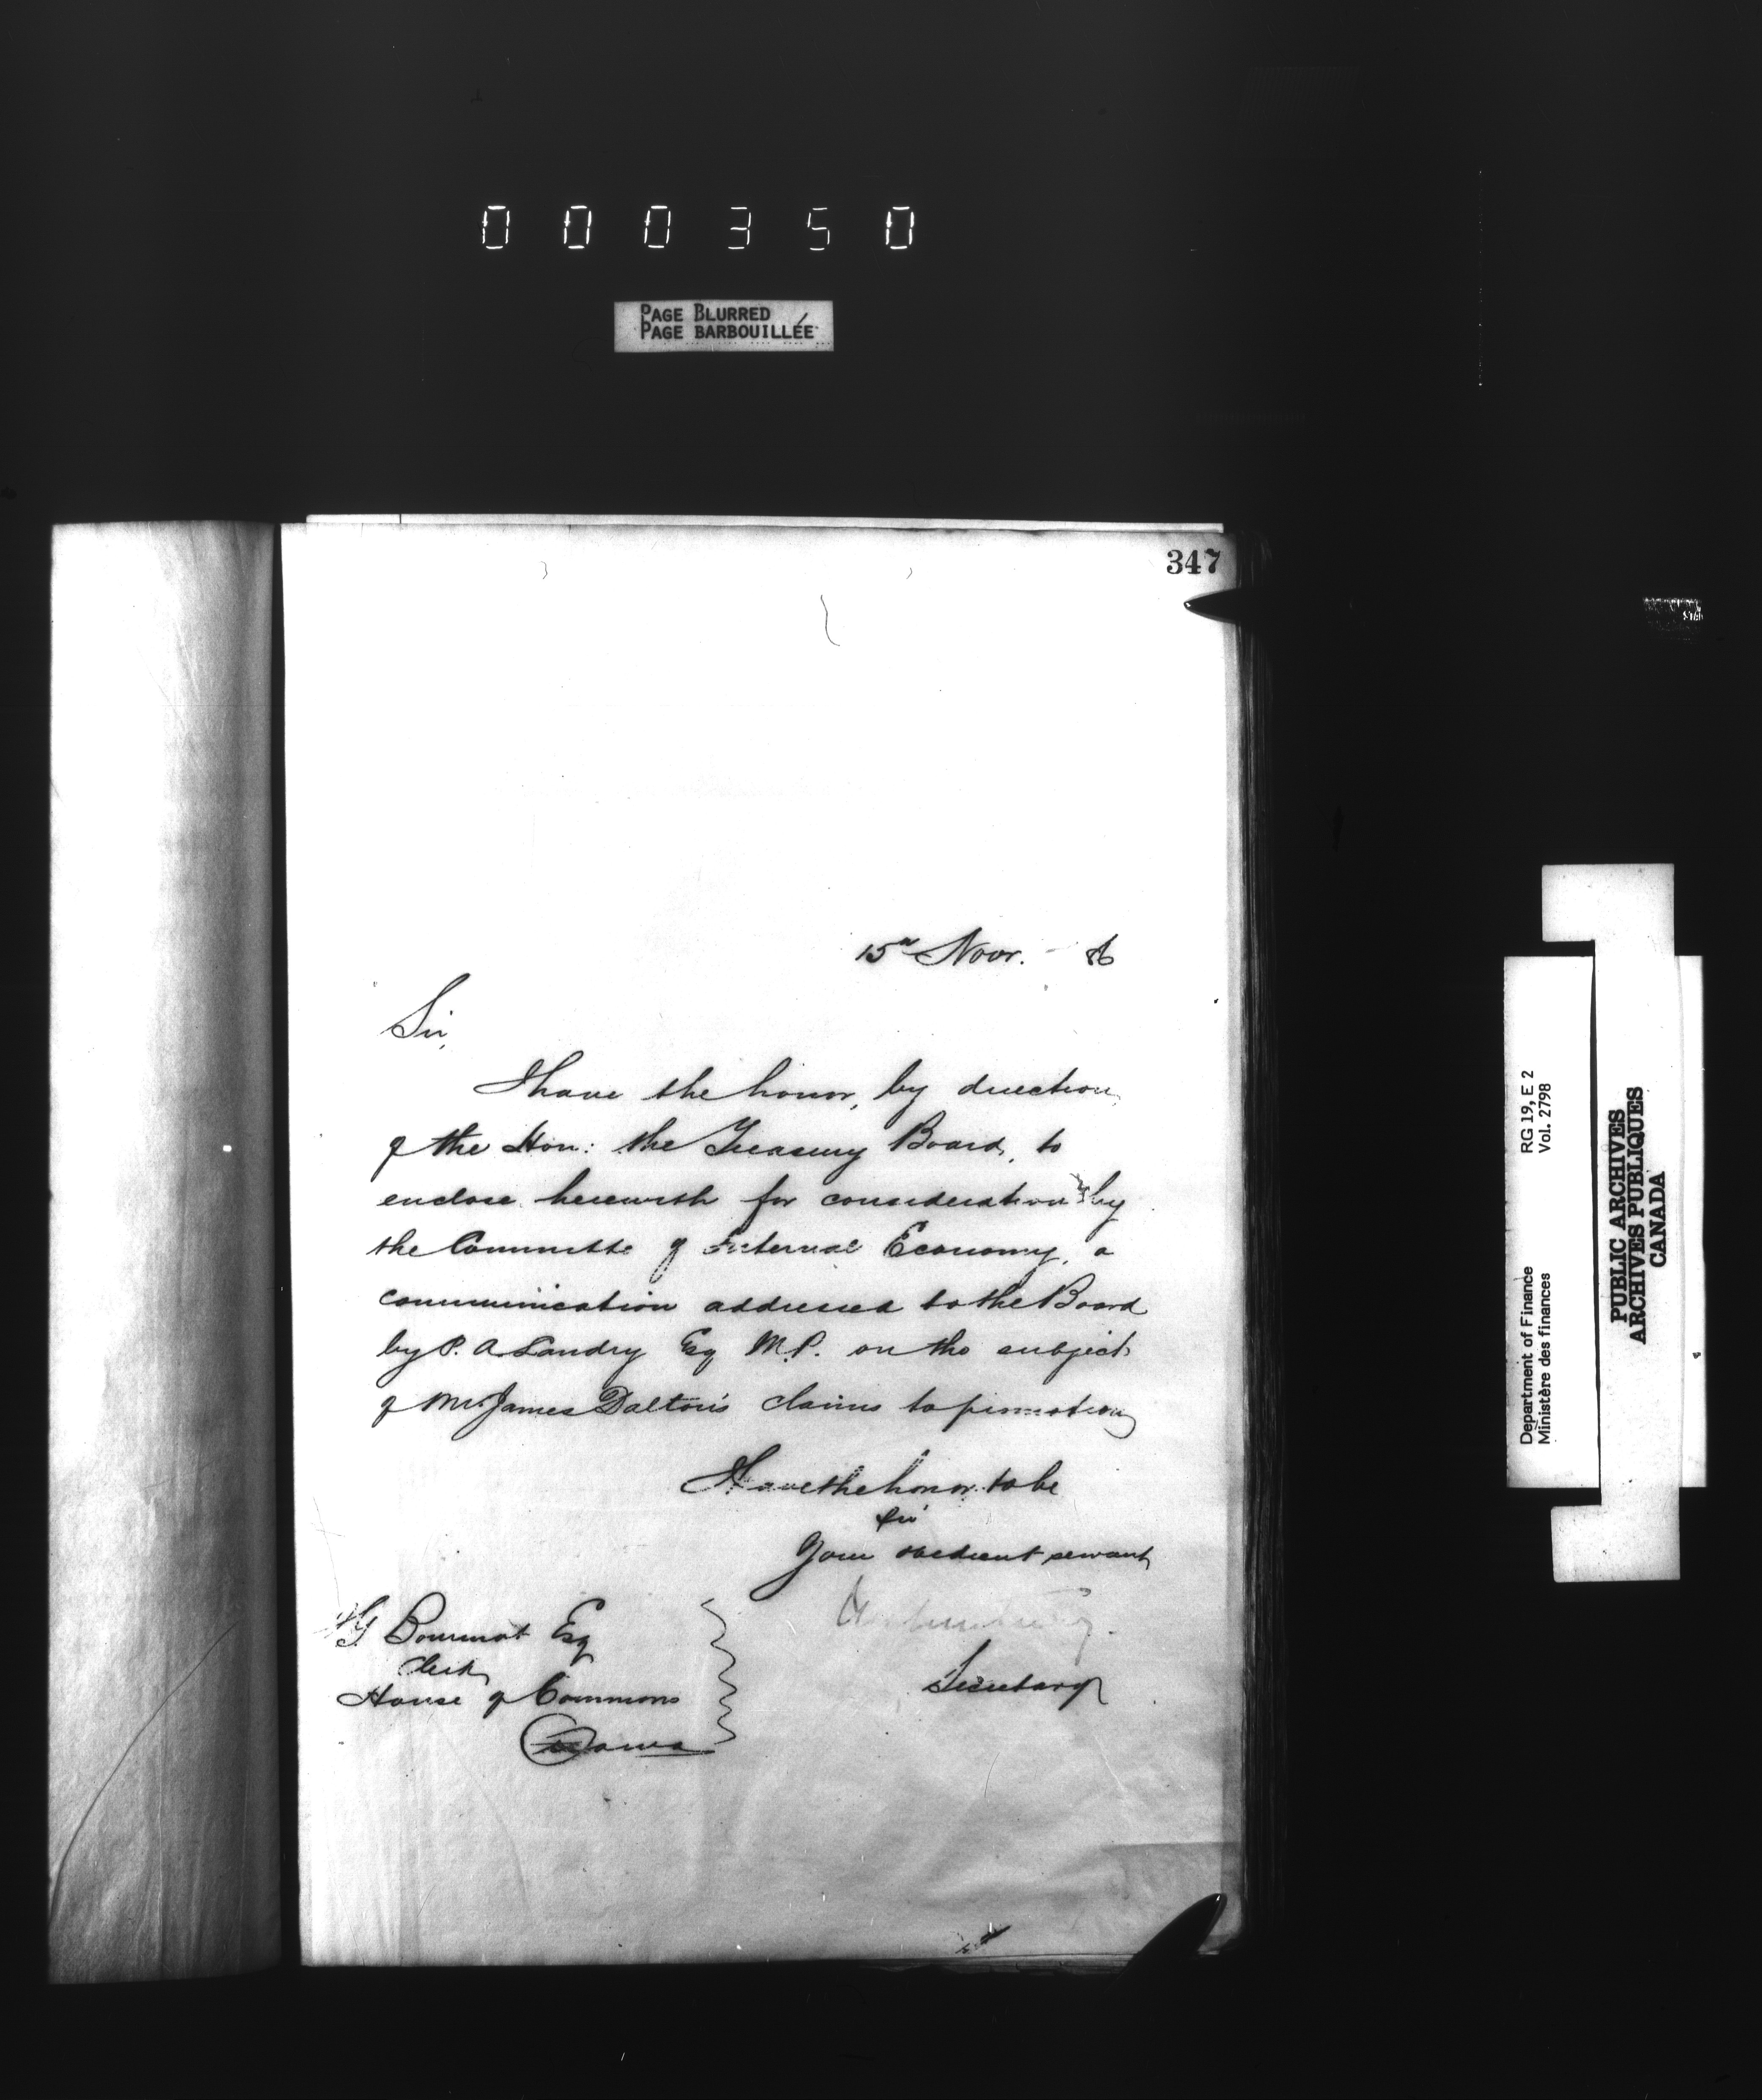 0 0 0 3 5 0
PAGE BLURRED
PAGE BARBOUILLÉE
347
15th Novr. 86
Sir,
I have the honor, by direction
of the Hon: the Treasury Board, to
enclose herewith for consideration by
the Committe of Internal Economy, a
communication addressed to the Board
by P. A. Landry Esq M.P. on the subject
of Mr. James Dalton's claims to promotion
I have the honor to be
Sir
Your obedient servant
Secretary
Bourinot Esq
Clerk
House of Commons
Ottawa
Department of Finance RG 19, E 2
Ministère des finances Vol. 2798
PUBLIC ARCHIVES
ARCHIVES PUBLIQUES
CANADA